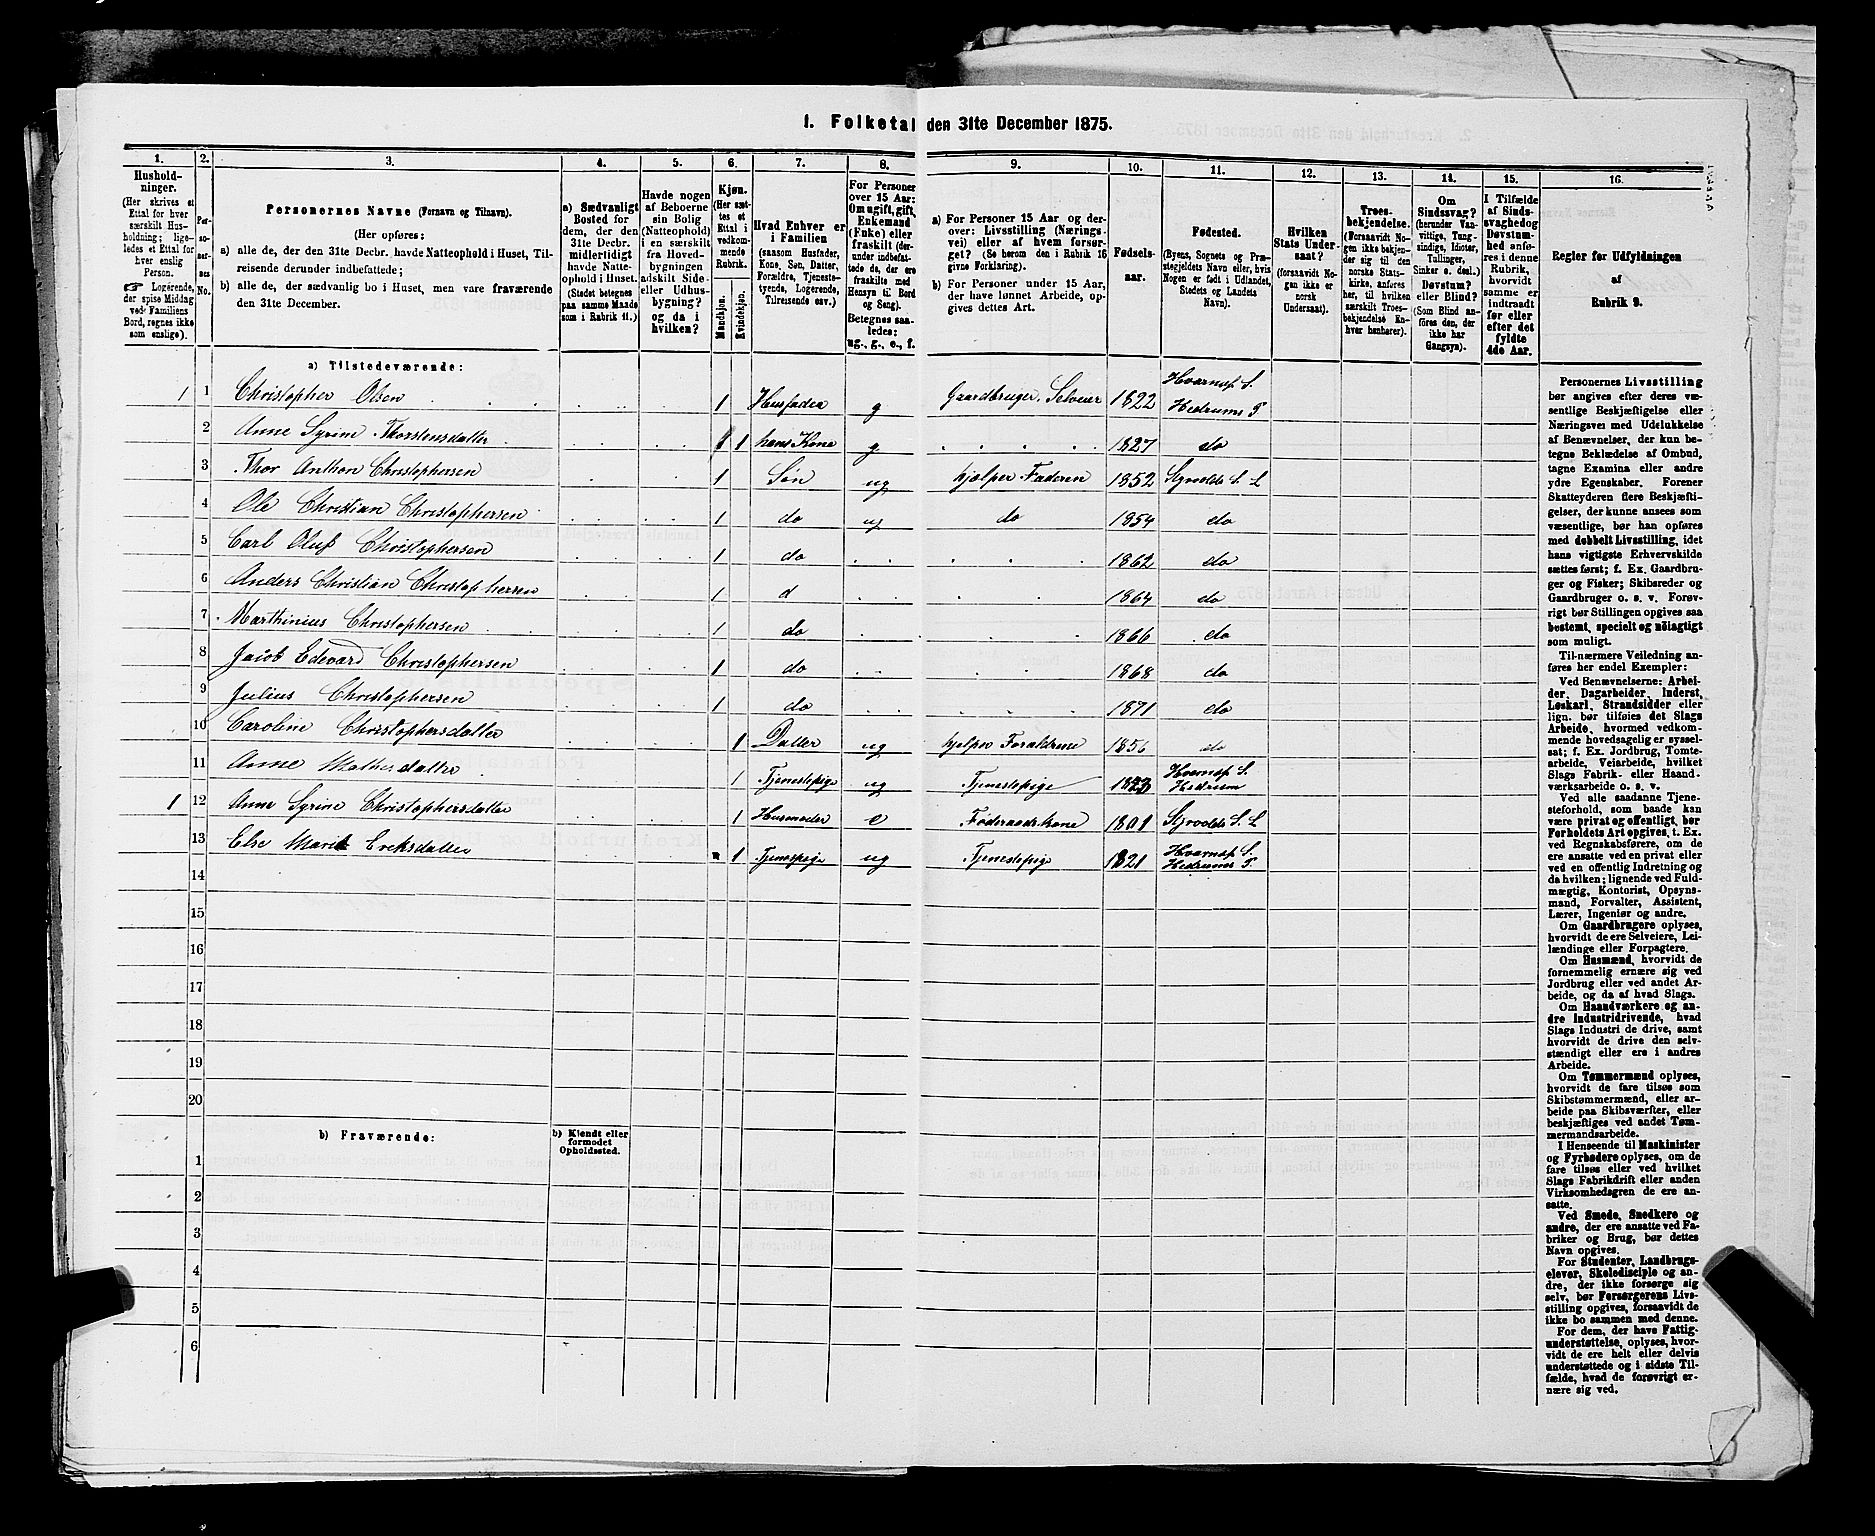 1. Folketal den 31te December 1875.
1. 2. 3. 4. 5. 6. 7. 8. 9. 10. 11. 12. 13. 14. 15. 16.
Hushold-
ninger.
(Her skrives et
Ettal for hver
særskilt Hus-
holdning; lige-
ledes et Ettal for
hver enslig
Person.
☞ Logerende,
der spise Middag
ved Familiens
Bord, regnes ikke
som enslige).
Per-
so-
ner-
nes
No.
Personernes Navne (Fornavn og Tilnavn).
(Her opføres:
a) alle de, der den 31te Decbr. havde Natteophold i Huset, Til-
reisende derunder indbefattede;
b) alle de, der sædvanlig bo i Huset, men vare fraværende
den 31te December.
a) Sædvanligt
Bosted for
dem, der den
31te Decbr.
midlertidigt
havde Natte-
ophold i Huset.
(Stedet betegnes
paa samme Maade
som i Rubrik 11.)
Havde nogen
af Beboerne
sin Bolig
(Natteophold)
i en særskilt
fra Hoved-
bygningen
adskilt Side-
eller Udhus-
bygning?
og da i
hvilken?
Kjøn.
(Her sæt-
tes et
Ettal i
vedkom-
mende
Rubrik.
Mandkjøn.
Kvindekjøn.
Hvad Enhver er
i Familien
(saasom Husfader,
Kone, Søn, Datter,
Forældre, Tjeneste-
tyende, Logerende,
Tilreisende osv.)
For Personer
over 15 Aar:
Om ugift, gift,
Enkemand
(Enke) eller
fraskilt (der-
under indbefat-
tede de, der ere
fraskilte med
Hensyn til Bord
og Seng).
Betegnes saa-
ledes:
ug., g., e., f.
a) For Personer 15 Aar og der-
over: Livsstilling (Nærings-
vei) eller af hvem forsør-
get? (Se herom den i Rubrik 16
givne Forklaring).
b) For Personer under 15 Aar,
der have lønnet Arbeide, op-
gives dettes Art.
Fødsels-
aar.
Fødested.
(Byens, Sognets og Præ-
stegjeldets Navn eller, hvis
Nogen er født i Udlandet,
Stedets og Landets
Navn).
Hvilken
Stats Under-
saat?
(forsaavidt No-
gen ikke er
norsk
Undersaat).
Troes-
bekjendelse.
(Forsaavidt No-
gen ikke bekjen-
der sig til den
norske Stats-
kirke, anføres
her, til hvilken
særskilt Troes-
bekjendelse En-
hver henhører).
Om
Sindssvag?
(herunder Van-
vittige, Tung-
sindige, Idioter,
Tullinger,
Sinker o. desl.)
Døvstum?
eller Blind?
(Som Blind an-
føres den, der
ikke har
Gangsyn).
I Tilfælde
af Sinds-
svaghed og
Døvstum-
hed anfø-
res i denne
Rubrik,
hvorvidt
samme er
indtraadt
før eller
efter det
fyldte
4de Aar.
Regler for Udfyldningen
af
Rubrik 9.
a) Tilstedeværende:
1 1 Christopher Olsen 1 Husfader g Gaardbruger, Selveier 1822 Hvarnæs S. Hedrums P
2 Anne Syrine Thorstensdatter 1 hans Kone g 1827 do
3 Thor Anthon Christophersen 1 Søn ug hjælper Faderen 1852 Styrvolds S. L
4 Ole Christian Christophersen 1 do ug do 1854 do
5 Carl Oluf Christophersen 1 do 1862 do
6 Anders Christian Christophersen 1 d 1864 do
7 Marthinius Christophersen 1 do 1866 do
8 Jacob Edevard Christophersen 1 do 1868 do
9 Julius Christophersen 1 do 1871 do
10 Caroline Christophersdatter 1 Datter ug hjelper Forældrene 1856 do
11 Anne Mathisdatter 1 Tjenestepige ug Tjenestepige 1823 Hvarnæs S. Hedrum
1 12 Anne Syrine Christophersdatter 1 Husmoder e Føderaadskone 1801 Styrvolds S. L
13 Else Marie Eriksdatter 1 Tjenespige ug Tjenestepige 1821 Hvarnæs S. Hedrums P
14
15
16
17
18
19
20
b) Fraværende:
b) Kjendt eller
formodet
Opholdssted.
1
2
3
4
5
6
Personernes Livsstilling
bør angives efter deres væ-
sentlige Beskjæftigelse eller
Næringsvei med Udelukkelse
af Benævnelser, der kun be-
tegne Beklædelse af Ombud,
tagne Examina eller andre
ydre Egenskaber. Forener
Skatteyderen flere Beskjæfti-
gelser, der kunne ansees som
væsentlige, bør han opføres
med dobbelt Livsstilling, idet
hans vigtigste Erhvervskilde
sættes først; f. Ex. Gaardbru-
ger og Fisker; Skibsreder og
Gaardbruger o. s. v. Forøv-
rigt bør Stillingen opgives saa
bestemt, specielt og nøiagtigt
som muligt.
Til nærmere Veiledning an-
føres her endel Exempler:
Ved Benævnelserne: Arbei-
der, Dagarbeider, Inderst,
Løskarl, Strandsidder eller
lign. bør tilføies det Slags
Arbeide, hvormed vedkom-
mende hovedsagelig er syssel-
sat; f. Ex. Jordbrug, Tomte-
arbeide, Veiarbeide, hvilket
Slags Fabrik- eller Haand-
værksarbeide o. s. v.
Ved alle saadanne Tjene-
steforhold, som baade kan
være privat og offentligt, bør
Forholdets Art opgives, t. Ex.
ved Regnskabsførere, om de
ere ansatte ved en privat eller
ved en offentlig Indretning og
da hvilken; lignende ved Fuld-
mægtig, Kontorist, Opsyns-
mand, Forvalter, Assistent,
Lærer, Ingeniør og andre.
Om Gaardbrugere oplyses,
hvorvidt de ere Selveiere, Lei-
lændinge eller Forpagtere.
Om Husmænd, hvorvidt de
fornemmelig ernære sig ved
Jordbrug eller ved andet Ar-
beide, og da af hvad Slags.
Om Haandværkere og an-
dre Industridrivende, hvad
Slags Industri de drive, samt
hvorvidt de drive den selv-
stændigt eller ere i andres
Arbeide.
Om Tømmermænd oplyses,
hvorvidt de fare tilsøs som
Skibstømmermænd, eller ar-
beide paa Skibsværfter, eller
beskjæftiges ved andet Tøm-
mermandsarbeide.
I Henseende til Maskinister
og Fyrbødere oplyses, om de
fare tilsøs eller ved hvilket
Slags Fabrikdrift eller anden
Virksomhedsgren de ere an-
satte.
Ved Smede, Snedkere og
andre, der ere ansatte ved Fa-
briker og Brug, bør dettes
Navn opgives.
For Studenter, Landbrugs-
elever, Skoledisciple og an-
dre, der ikke forsørge sig
selv, bør Forsørgerens Livs-
stilling opgives, forsaavidt de
ikke bo sammen med denne.
For dem, der have Fattig-
understøttelse, oplyses, hvor-
vidt de ere helt eller delvis
understøttede og i sidste Til-
fælde, hvad de forøvrigt er-
nære sig ved.